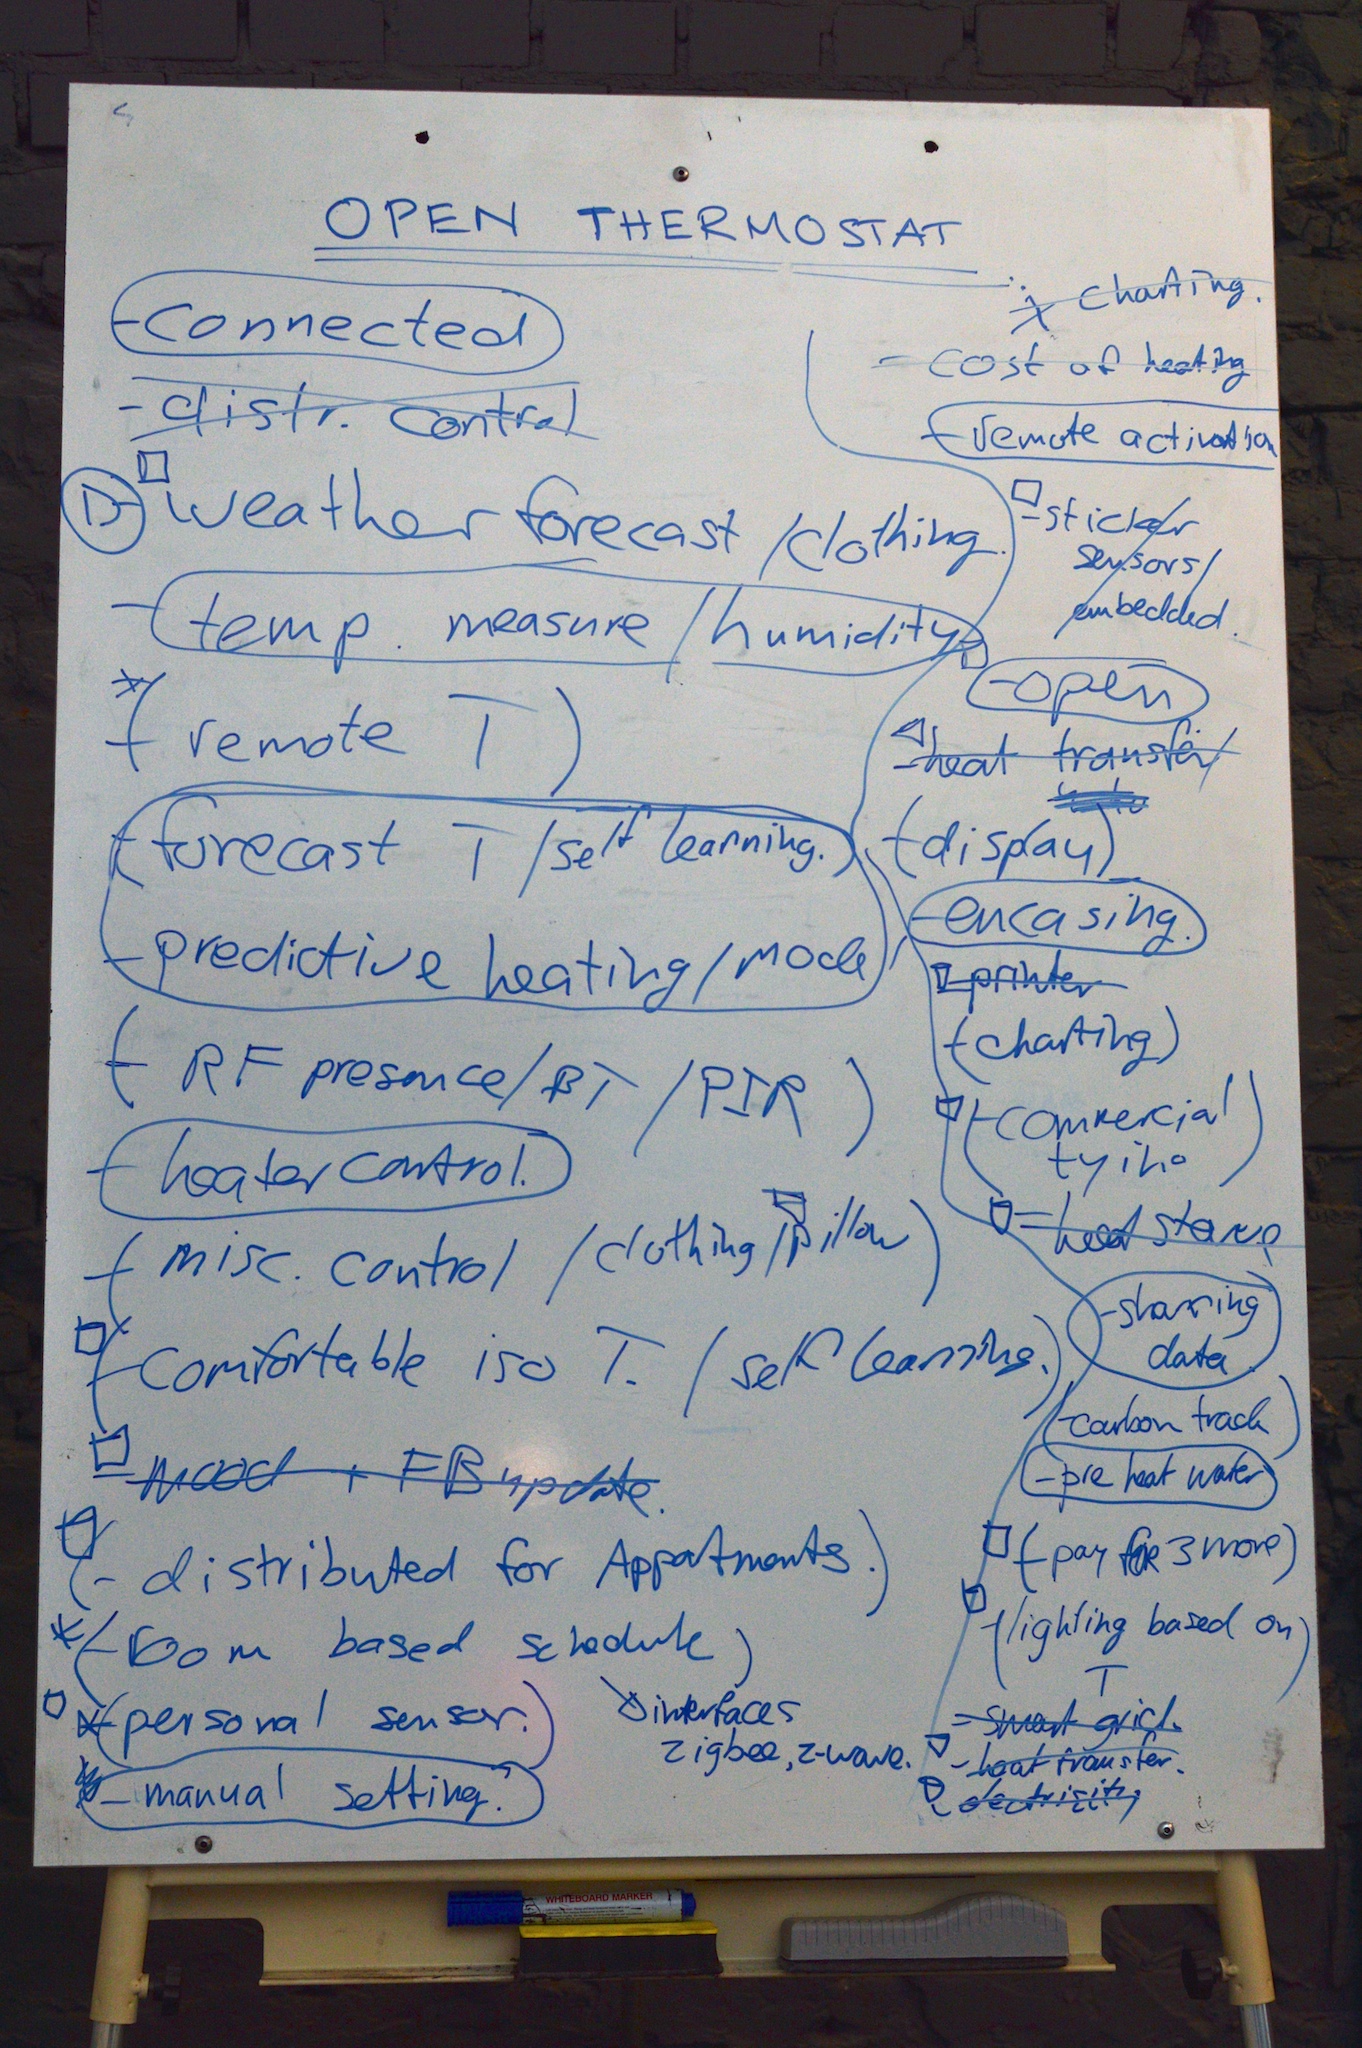 OPEN THERMOSTAT
- connected
- distr. control
D weather forecast /clothing.
- temp. measure /humidity
* (- remote T)
(- forecast T /self learning.)
- predictive heating/mode
(- RF presence/BT /PIR)
- heater control.
(- misc. control /clothing/pillow)
(- comfortable iso T. / self learning.)
- mood + FB update.
(- distributed for Appartments.)
* (- room based schedule)
* (- personal sensor.)
- manual setting.
interfaces
zigbee, z-wave.
charting.
- cost of heating
- remote activation
- sticker
sensors/
embedded.
- open
- heat transfer/
(- display)
- encasing.
- printer
(- charting)
(- commercial
- sharing
data.
(- carbon track)
- pre heat water
(- pay for 3 more)
(- lighting based on
T)
- smart grid.
- heat transfer.
WHITEBOARD MARKER